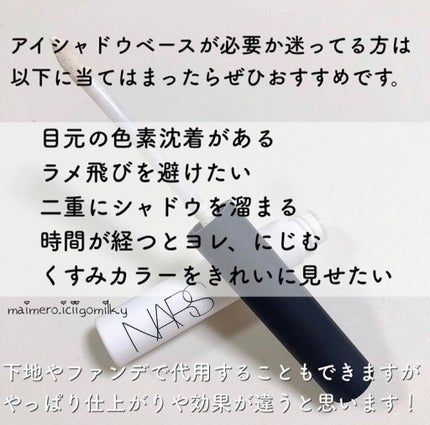 アイシャドウベースが必要か迷ってる方は
以下に当てはまったらぜひおすすめです。
目元の色素沈着がある
ラメ飛びを避けたい
二重にシャドウを溜まる
時間が経つとヨレ、にじむ
くすみカラーをきれいに見せたい
maimero.iciigomilk.y
NARS
下地やファンデで代用することもできますが
やっぱり仕上がりや効果が違うと思います！